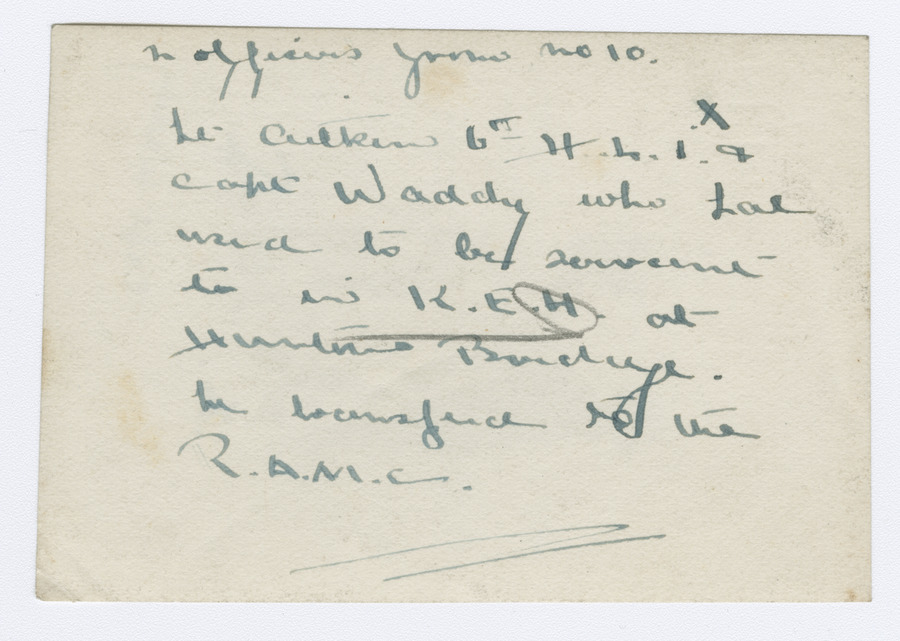 officers from no 10.
Lt Aitken 6th H.L.I. X &
Capt Waddy who Hal
used to be servant
to in K.E.H. at
Bridge.
he transferred to the
R.A.M.C.